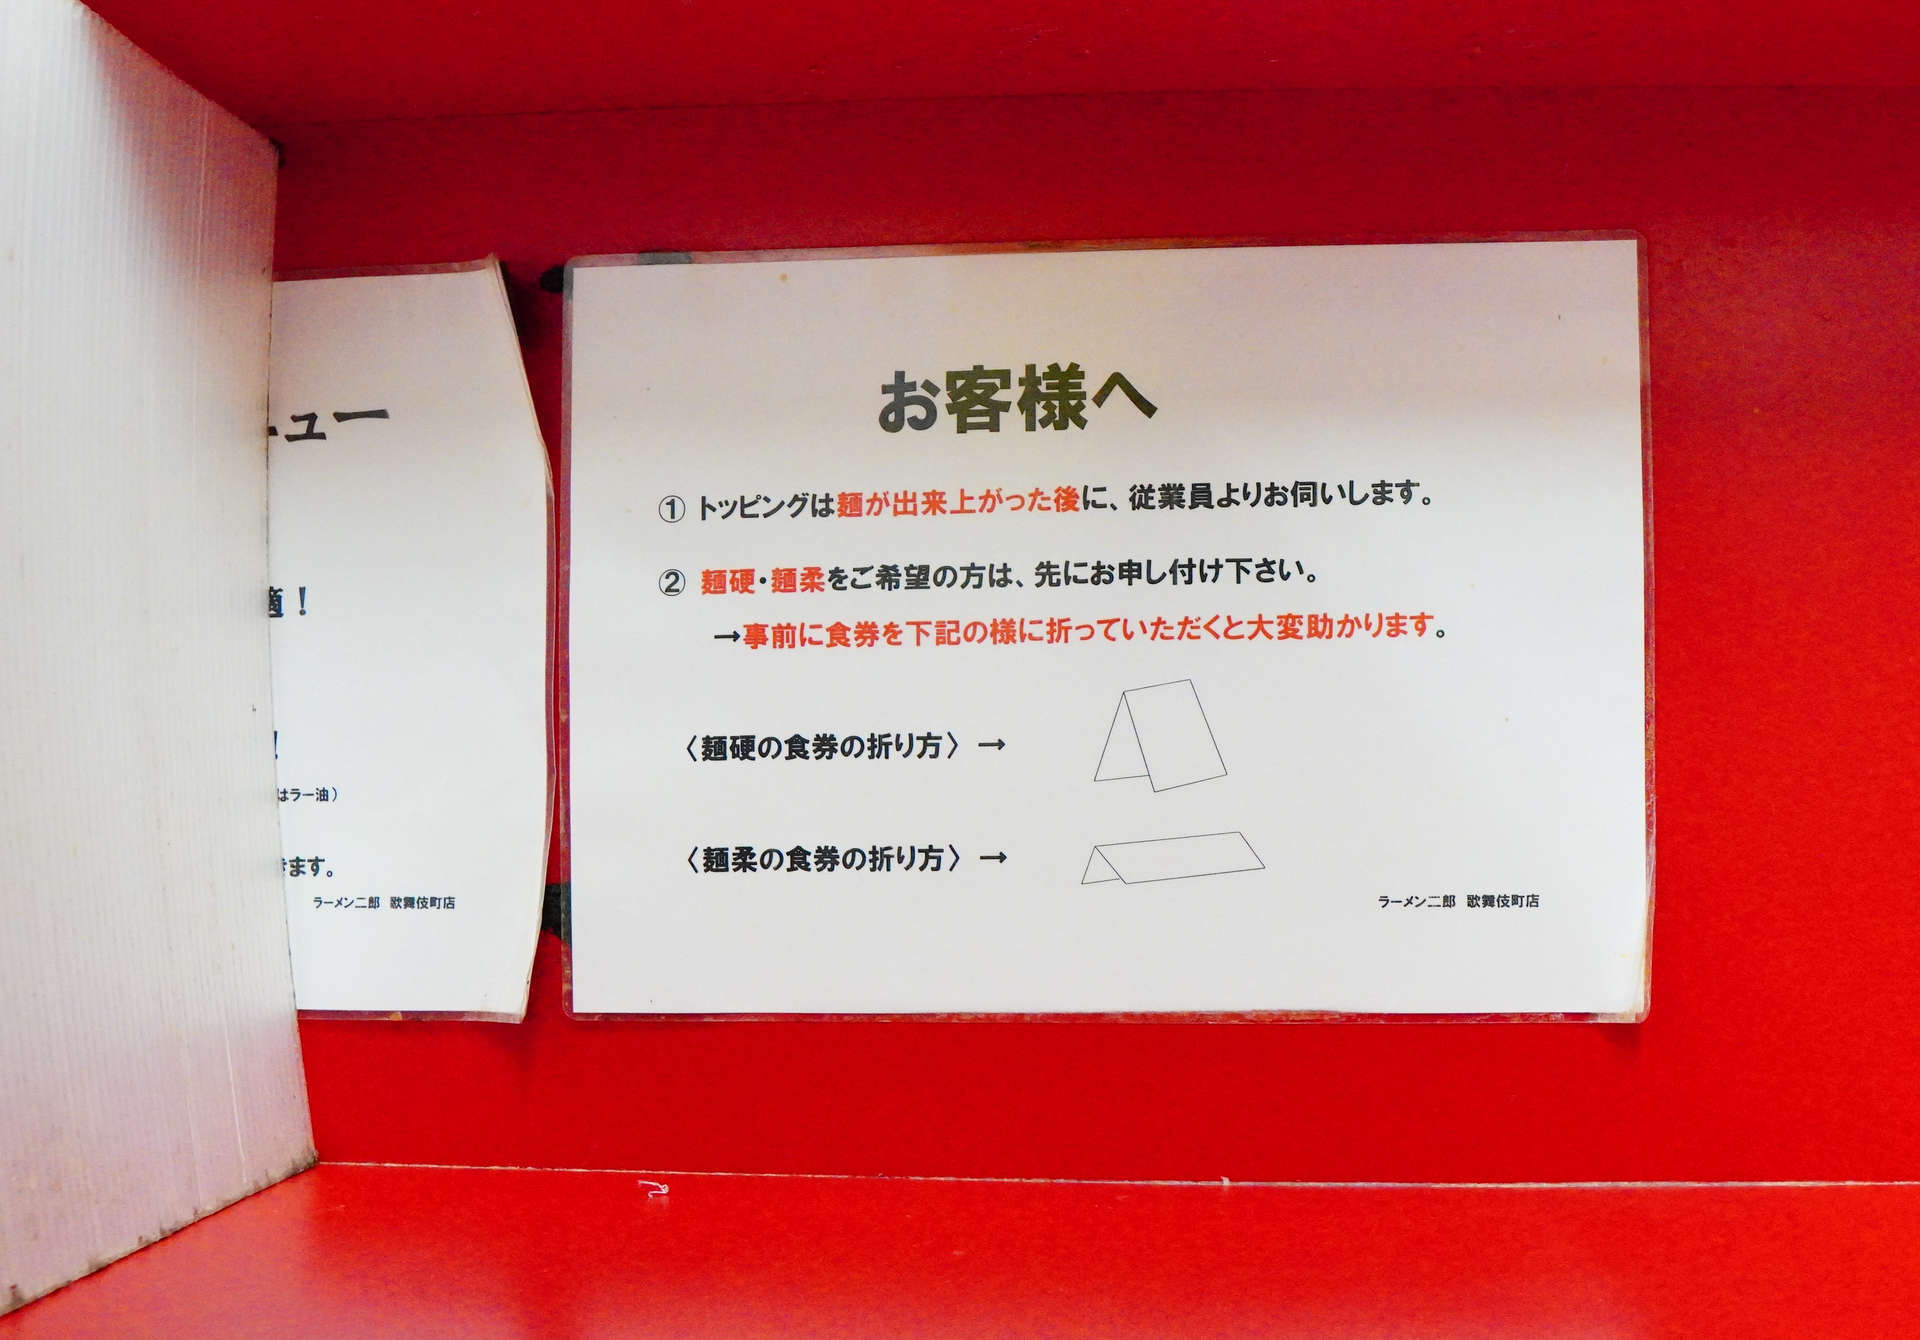 ニュー
適！
！
はラー油）
きます。
ラーメン二郎 歌舞伎町店
お客様へ
① トッピングは麺が出来上がった後に、従業員よりお伺いします。
② 麺硬・麺柔をご希望の方は、先にお申し付け下さい。
→事前に食券を下記の様に折っていただくと大変助かります。
〈麺硬の食券の折り方〉→
〈麺柔の食券の折り方〉→
ラーメン二郎 歌舞伎町店